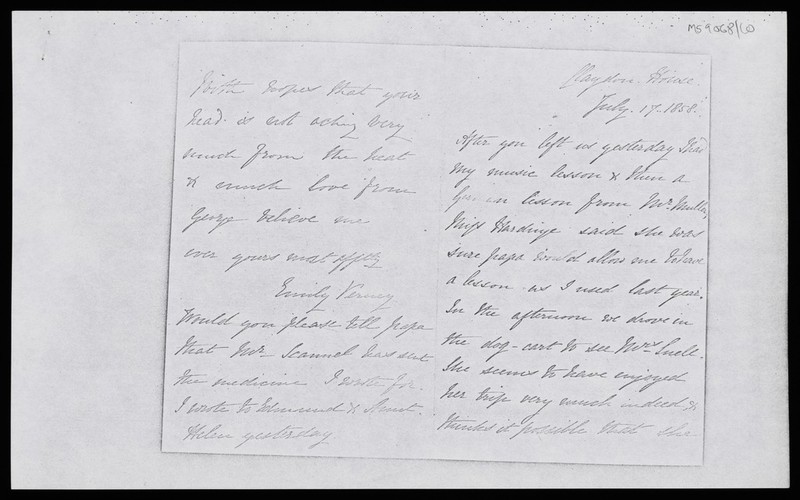 MS 9068/60
Claydon House
July. 17. 1858.
After you left us yesterday I had
my music lesson & then a
lesson from Mr. Muller,
Miss Hardinge said she was
sure papa would allow me to have
a lesson as I used last year.
In the afternoon we drove in
the dog-cart to see Mrs.
She seems to have enjoyed
her trip very much indeed &
thinks it possible that she
With hopes that your
head is not aching very
much from the heat
& much love from
George believe me
ever yours most affly
Emily Verney
Would you please tell papa
that Mr. Scannel has sent
the medicine I wrote for.
I wrote to Edmund & Aunt.
Helen yesterday